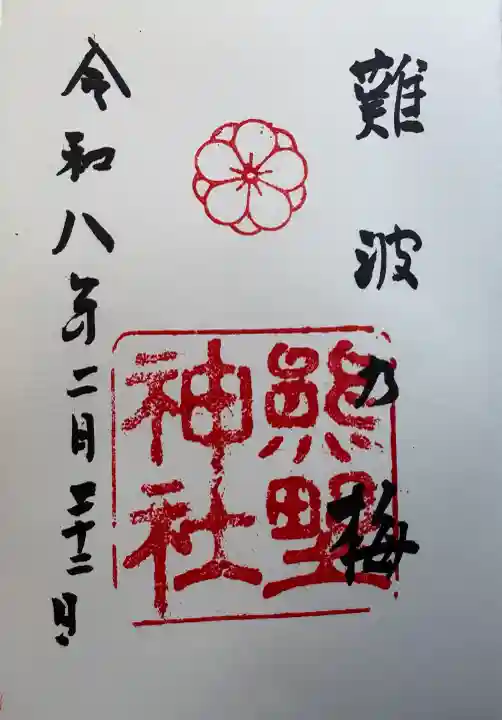 難波乃梅
熊野
神社
令和八年二月二十二日